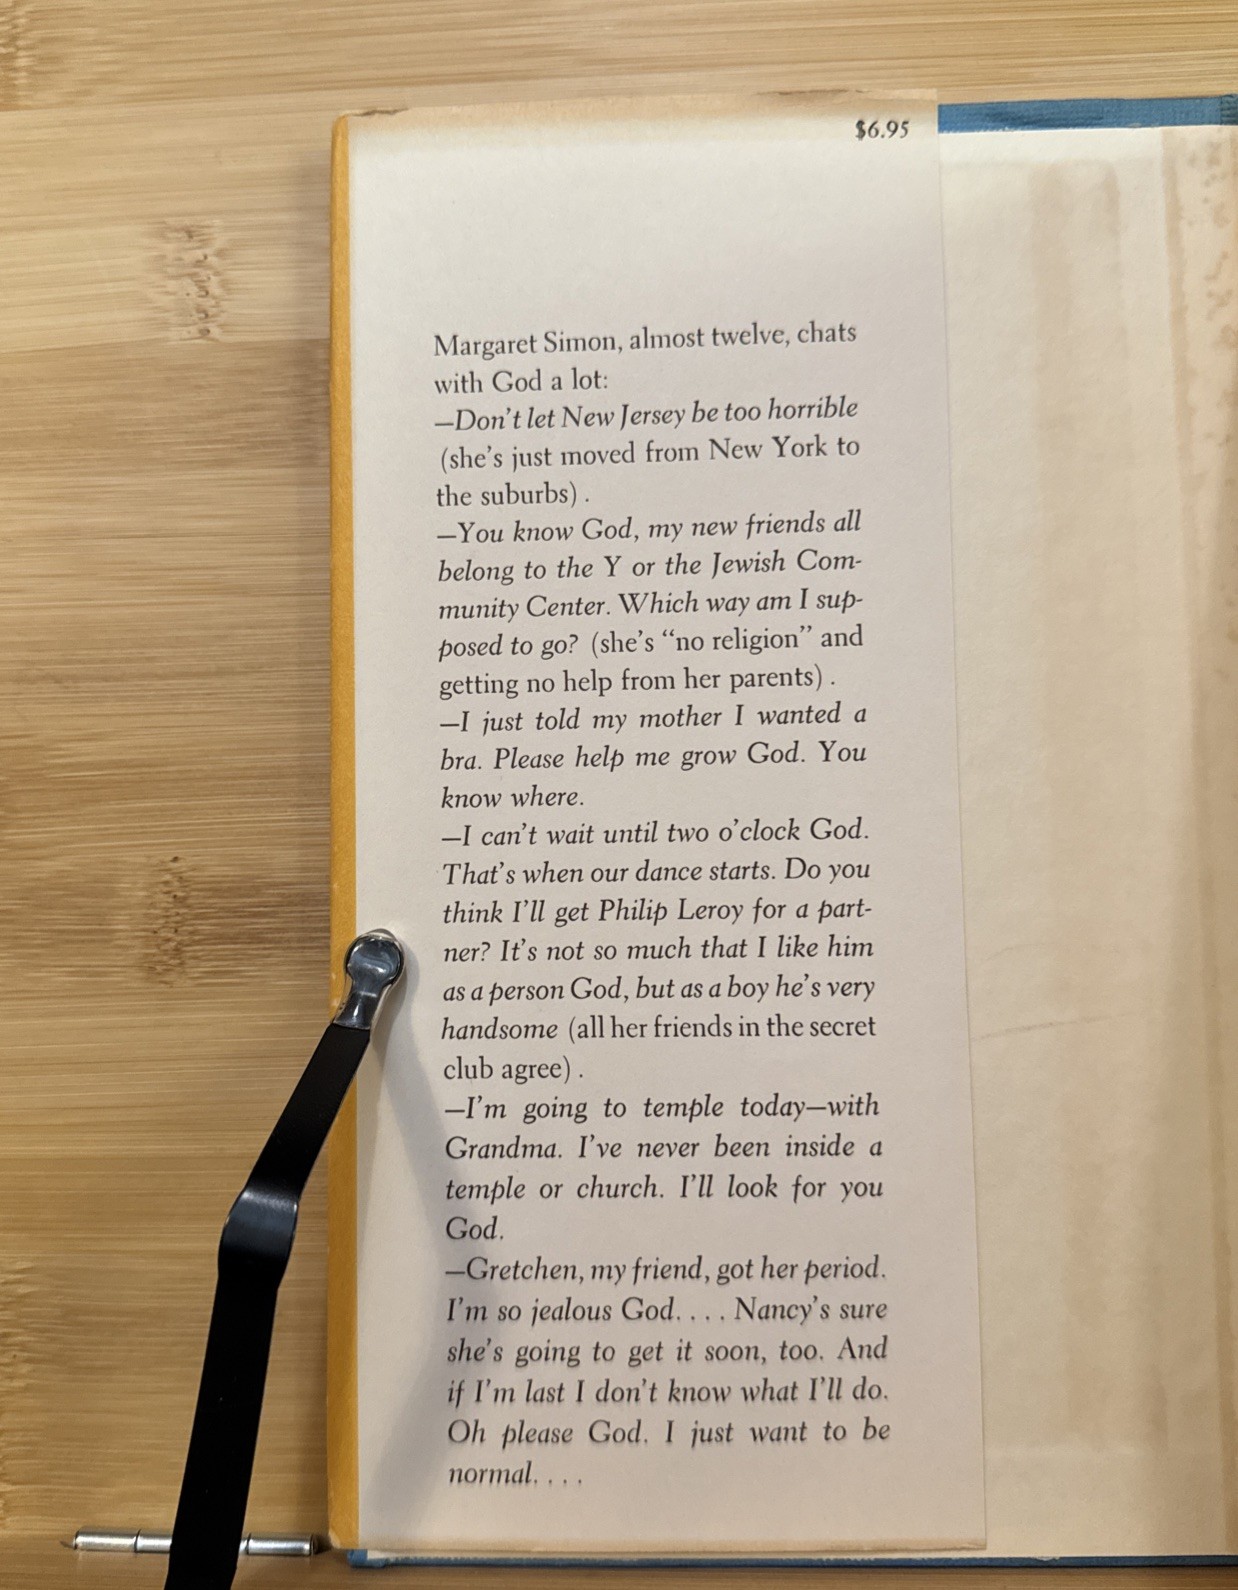 $6.95
Margaret Simon, almost twelve, chats
with God a lot:
—Don't let New Jersey be too horrible
(she's just moved from New York to
the suburbs) .
—You know God, my new friends all
belong to the Y or the Jewish Com-
munity Center. Which way am I sup-
posed to go? (she's “no religion” and
getting no help from her parents) .
—I just told my mother I wanted a
bra. Please help me grow God. You
know where.
—I can't wait until two o'clock God.
That's when our dance starts. Do you
think I'll get Philip Leroy for a part-
ner? It's not so much that I like him
as a person God, but as a boy he's very
handsome (all her friends in the secret
club agree) .
—I'm going to temple today—with
Grandma. I've never been inside a
temple or church. I'll look for you
God.
—Gretchen, my friend, got her period.
I'm so jealous God. . . . Nancy's sure
she's going to get it soon, too. And
if I'm last I don't know what I'll do.
Oh please God. I just want to be
normal. . . .